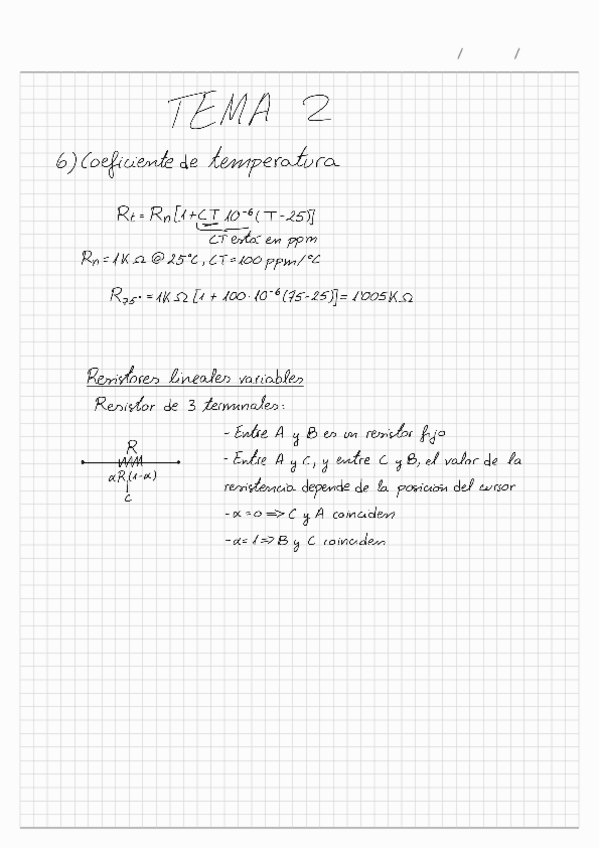 / /
TEMA 2
6) Coeficiente de temperatura
Rt = Rn [1 + CT 10⁻⁶ (T - 25)]
CT está en ppm
Rn = 1K Ω @ 25°C, CT = 100 ppm/°C
R75° = 1K Ω [1 + 100 · 10⁻⁶ (75 - 25)] = 1'005K Ω
Resistores lineales variables
Resistor de 3 terminales:
- Entre A y B es un resistor fijo
R
- Entre A y C, y entre C y B, el valor de la
αR (1-α)
resistencia depende de la posición del cursor
C
- α = 0 => C y A coinciden
- α = 1 => B y C coinciden